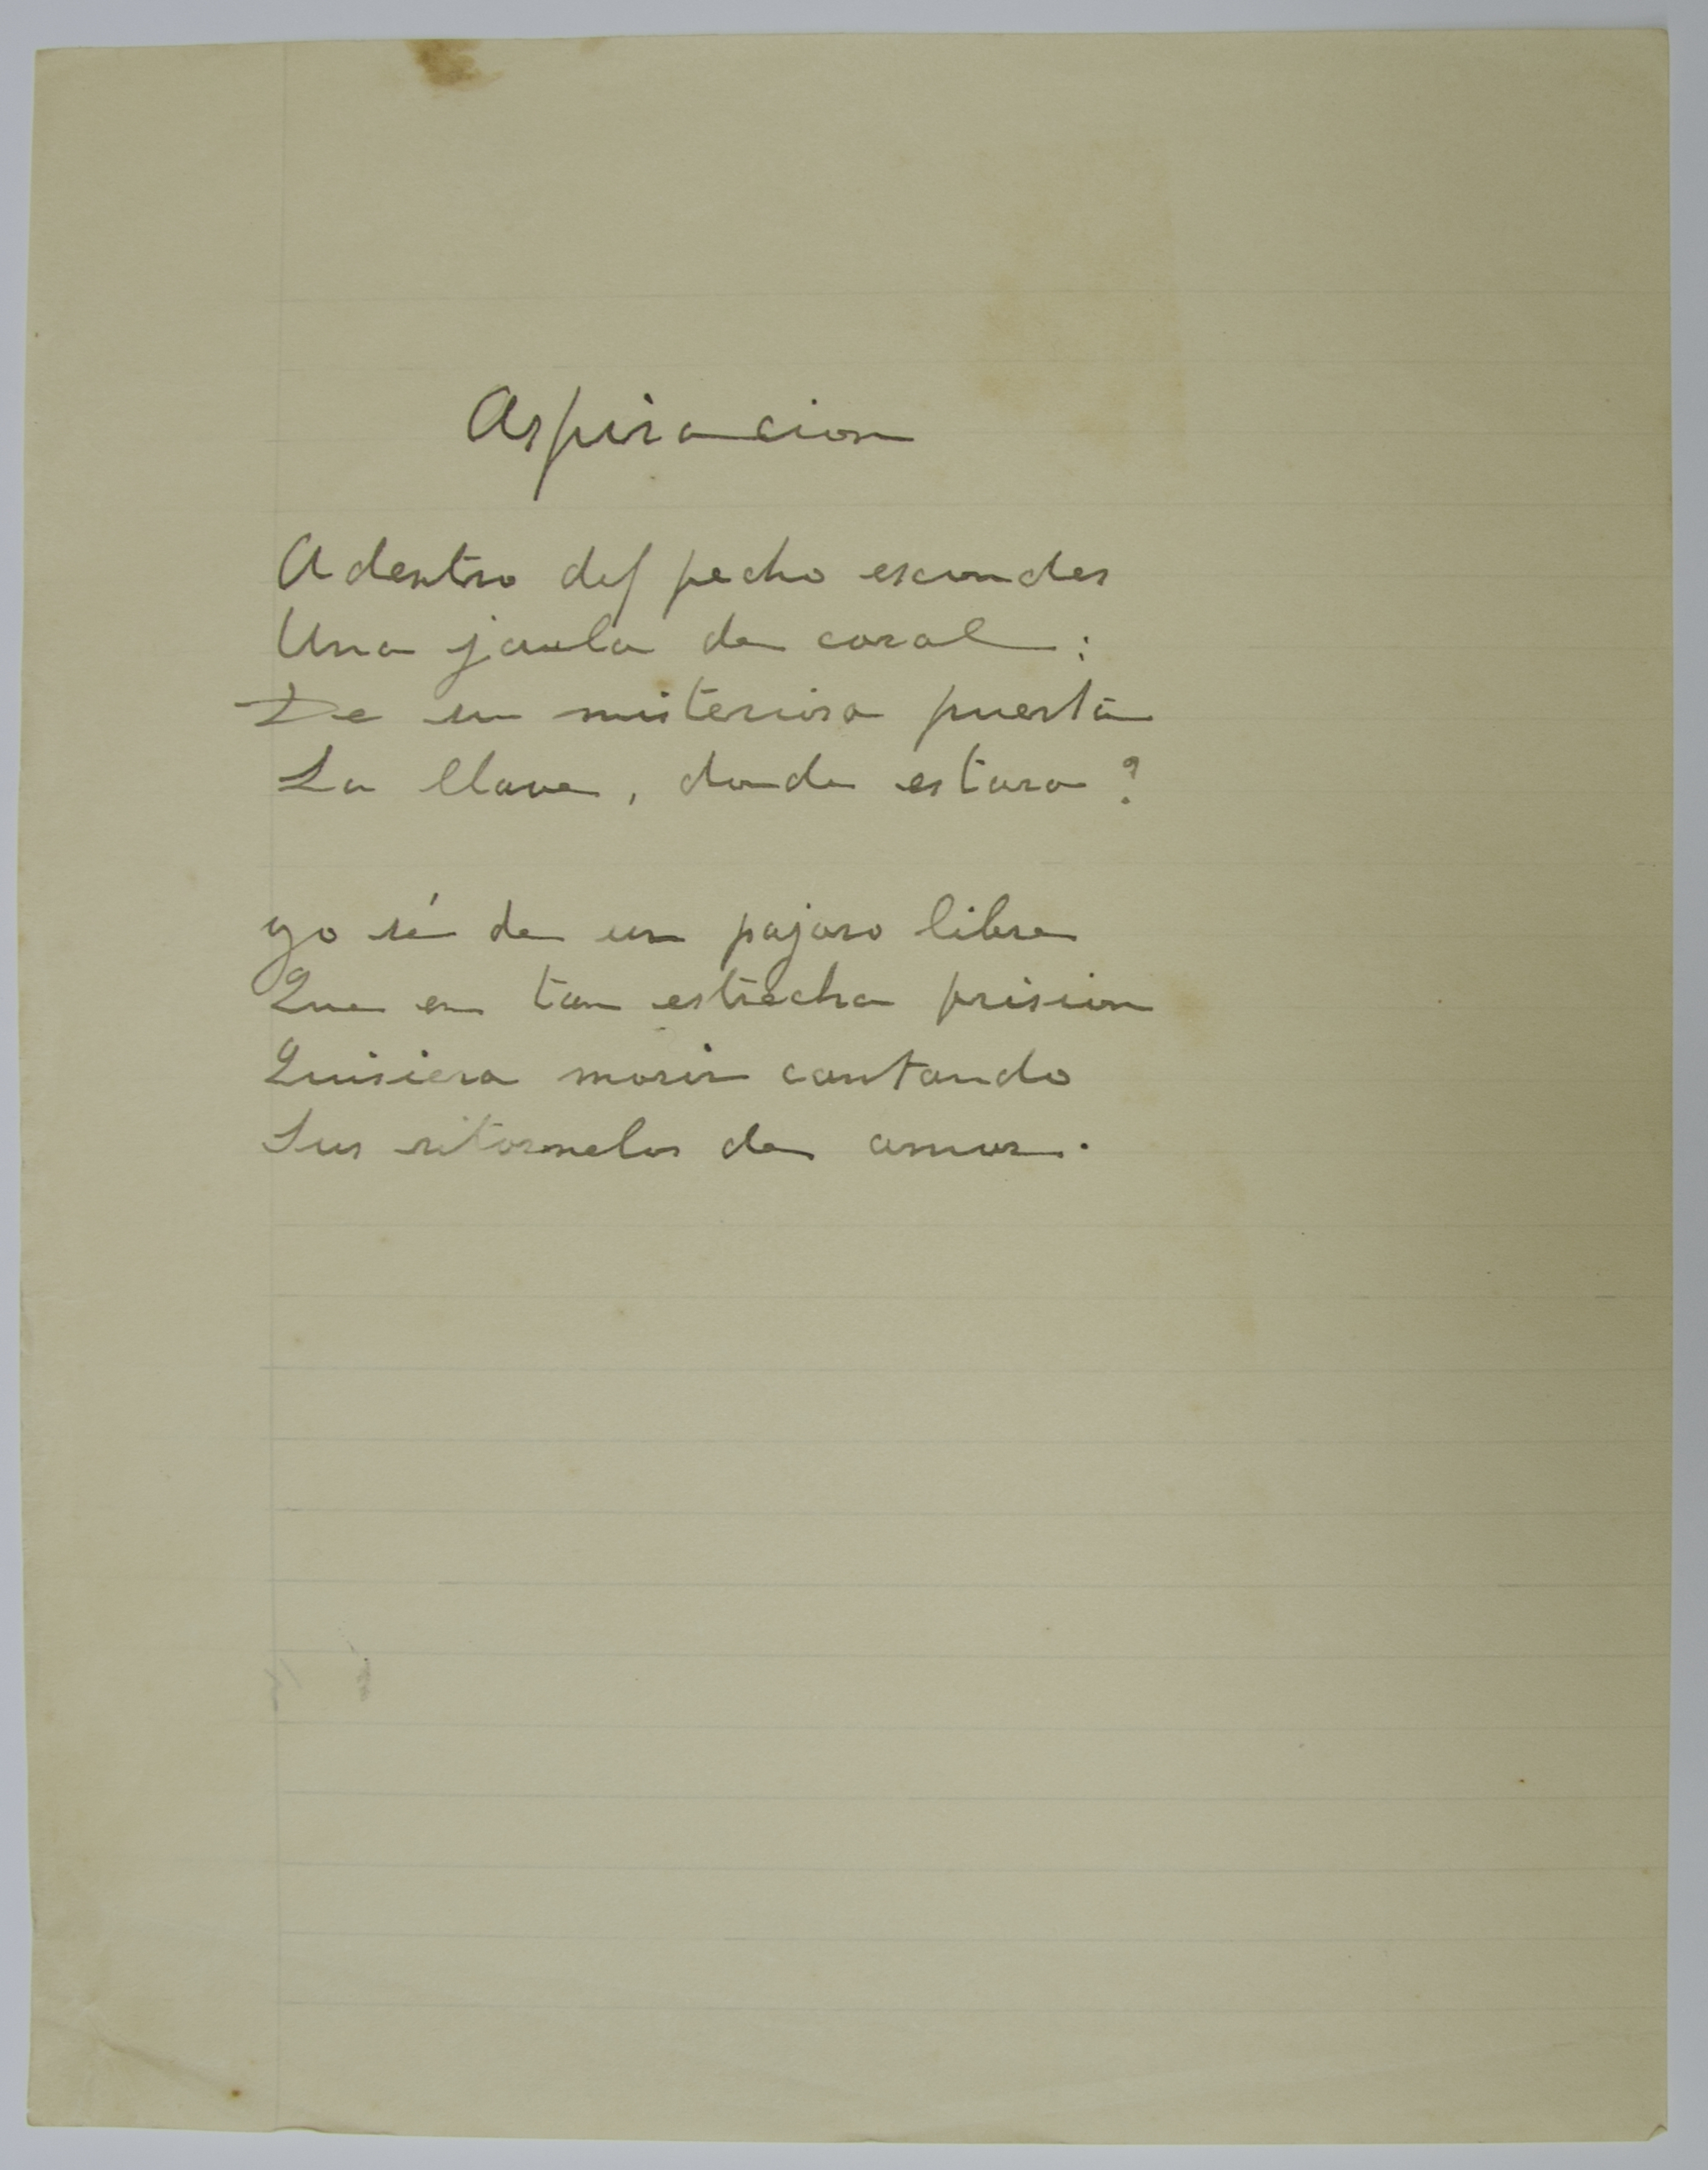 Aspiracion
Adentro del pecho escondes
Una jaula de coral:
De su misteriosa puerta
La llave, donde estara?
yo sé de un pajaro libre
Que en tan estrecha prision
Quisiera morir cantando
Sus ritornelos de amor.